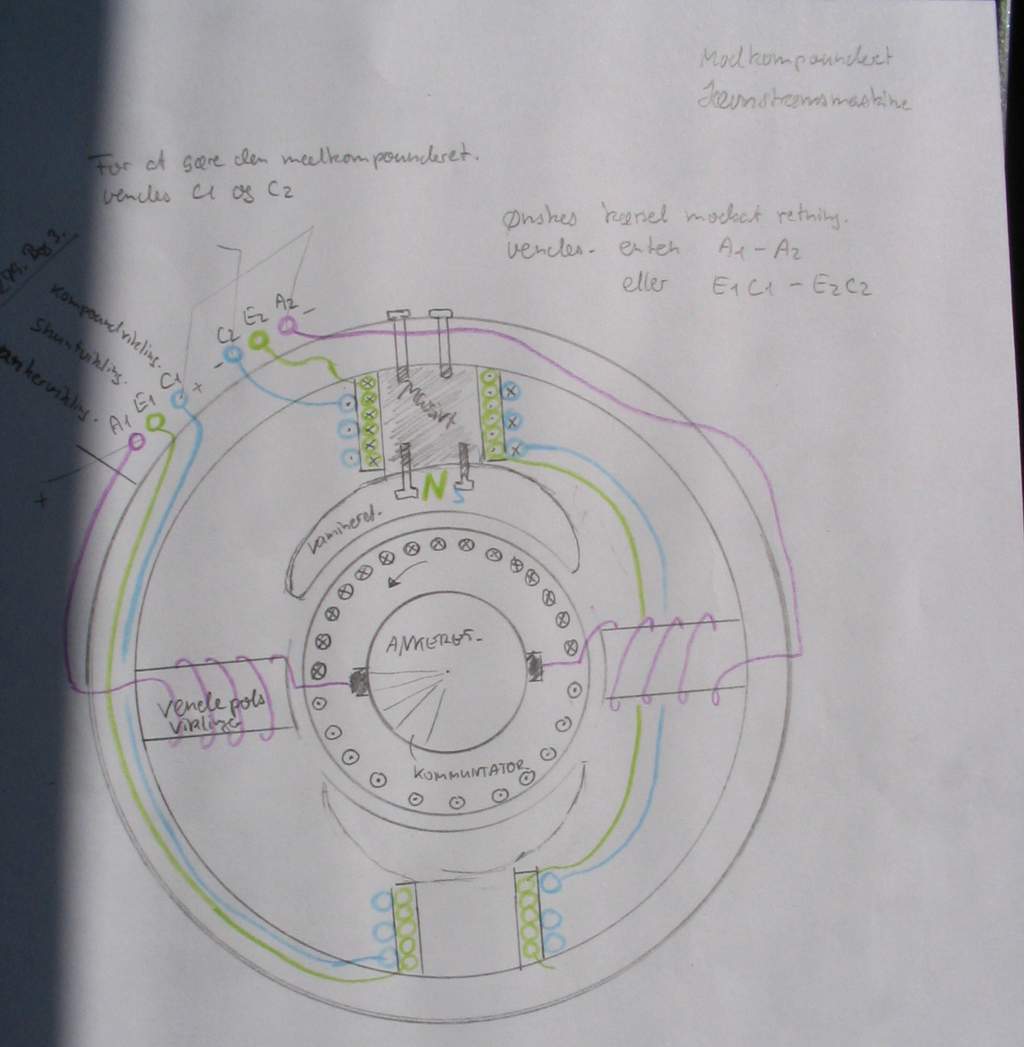 Modkompoundert
Jævnstrømsmaskine
For at gøre den medkompounderet.
vendes C1 og C2
Ønskes kørsel modsat retning.
vendes. enten A1-A2
eller E1C1-E2C2
Kompoundvikling.
Shuntvikling.
ankervikling.
A2
E2
C2
-
-
C1
x
E1
A1
x
Massivt
N S
lamineret.
ANKERET.
Vendepols
vikling
KOMMUNTATOR